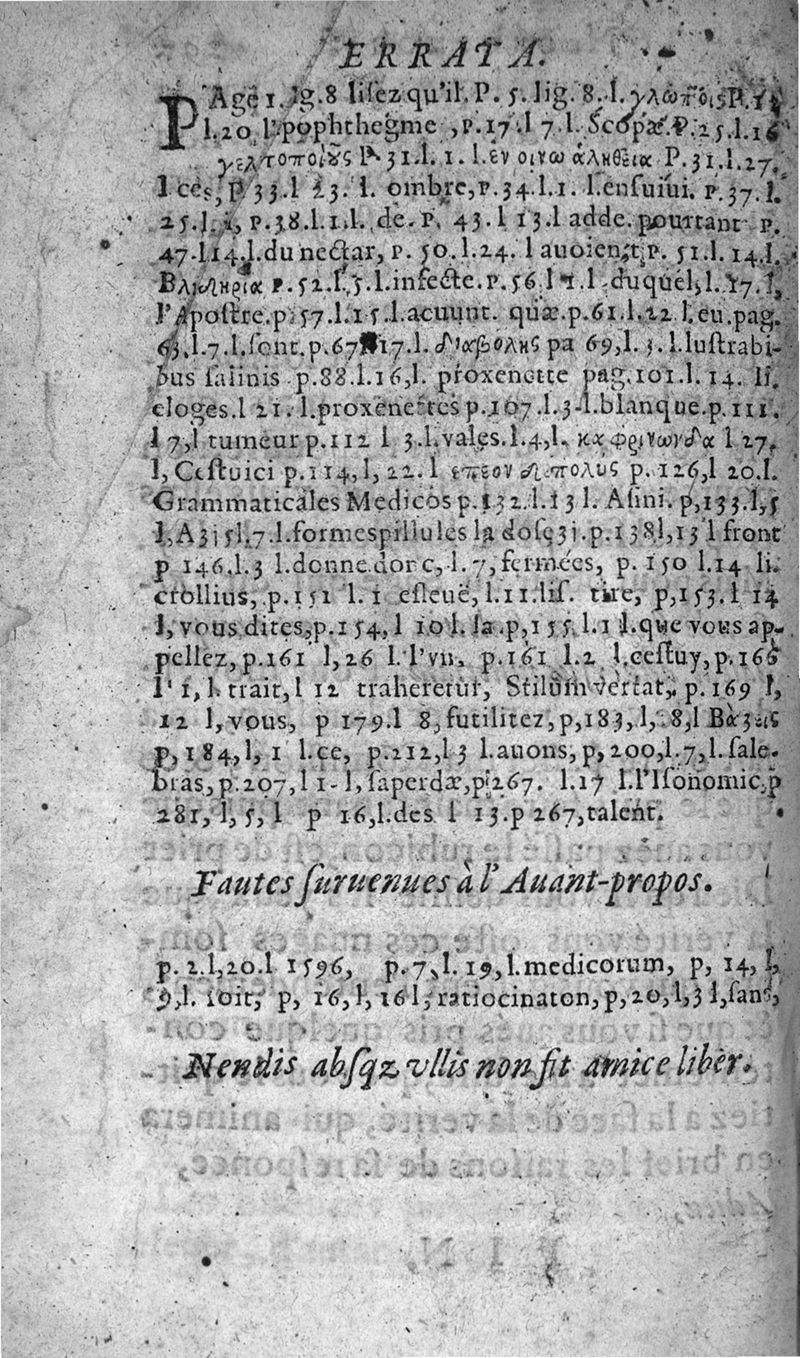 ERRATA.
PAge 1. lig.8 lisez qu'il. P. 5. lig. 8. l. γλωποις P.
l.20 l'.pophthegme ,P.17.l 7.l. Scopæ. P. 25.l.16
γελτοποιȣς P 31.l. 1. l.εν οινω άληθεια P.31.l.27.
l ces, p 33.l 13. l. ombre, P.34.l.1. l.ensuiui. P.37.l.
25.l. i, P.38.l.1.l. de. P. 43.l 13.l adde. pourtant P.
47.l.14.l.du nectar, P. 50.l.24. l auoient, P. 51.l.14.l.
Βλιμηρια P.52.l.5.l.infecte.P.56.l 1.l.duquel, l. 17.l,
l'Apostre.p.57.l.15.l.acuunt. quæ.p.61.l.22 l.eu.pag.
63.l.7.l.sont.p.67 17.l. διαβολης pa 69,l. 3.l.lustrabi-
bus salinis p.88.l.16,l. proxenette pag.101.l.14. li.
eloges.l 21. l.proxenettes p.107.l.3.l.blanque.p.111.
l 7,l tumeur p.112 l 3.l.vales.l.4,l. l 27.
l, Cestuici p.114,l, 22.l επεον p. 126,l 20.l.
Grammaticales Medicos p.132.l.13 l. Asini. p,133.l,5
l,A3i 5l.7.l.formespillules la dose3i.p.138l,13 l front
p 146.l.3 l.donne.dor c, l. 7,fermées, p. 150 l.14 li.
crollius, p.151 l. 1 esleuë, l.11.lis. tire, p,153.l 14
l, vous dites,p.154,l 10 l. sa.p,155.l.1 l.que vous ap-
pellez, p.161 l,26 l. l'vn. p.161 l.2 l.cestuy,p.166
l' 1,l. trait, l 12 traheretur, Stilum vertat,. p.169 l,
12 l,vous, p 179.l 8,futilitez,p,183,l,.8,l Βάζεις
p,184,l, 1 l.ce, p.212,l 3 l.auons,p,200,l.7,l.sale-
bras, p.207,l 1- l, saperdæ,p.267. l.17 l.l'Isonomie.p
281, l, 5, l p 16,l.des l 13.p 267,talent.
Fautes suruenues à l'Auant-propos.
p. 2.l,20.l 1596, p.7,l. 19, l.medicorum, p, 14, l,
9,l. soit, p, 16,l, 16 l, ratiocinaton,p,20,l,3 l,sans,
Mendis absqz vllis non fit amice liber.